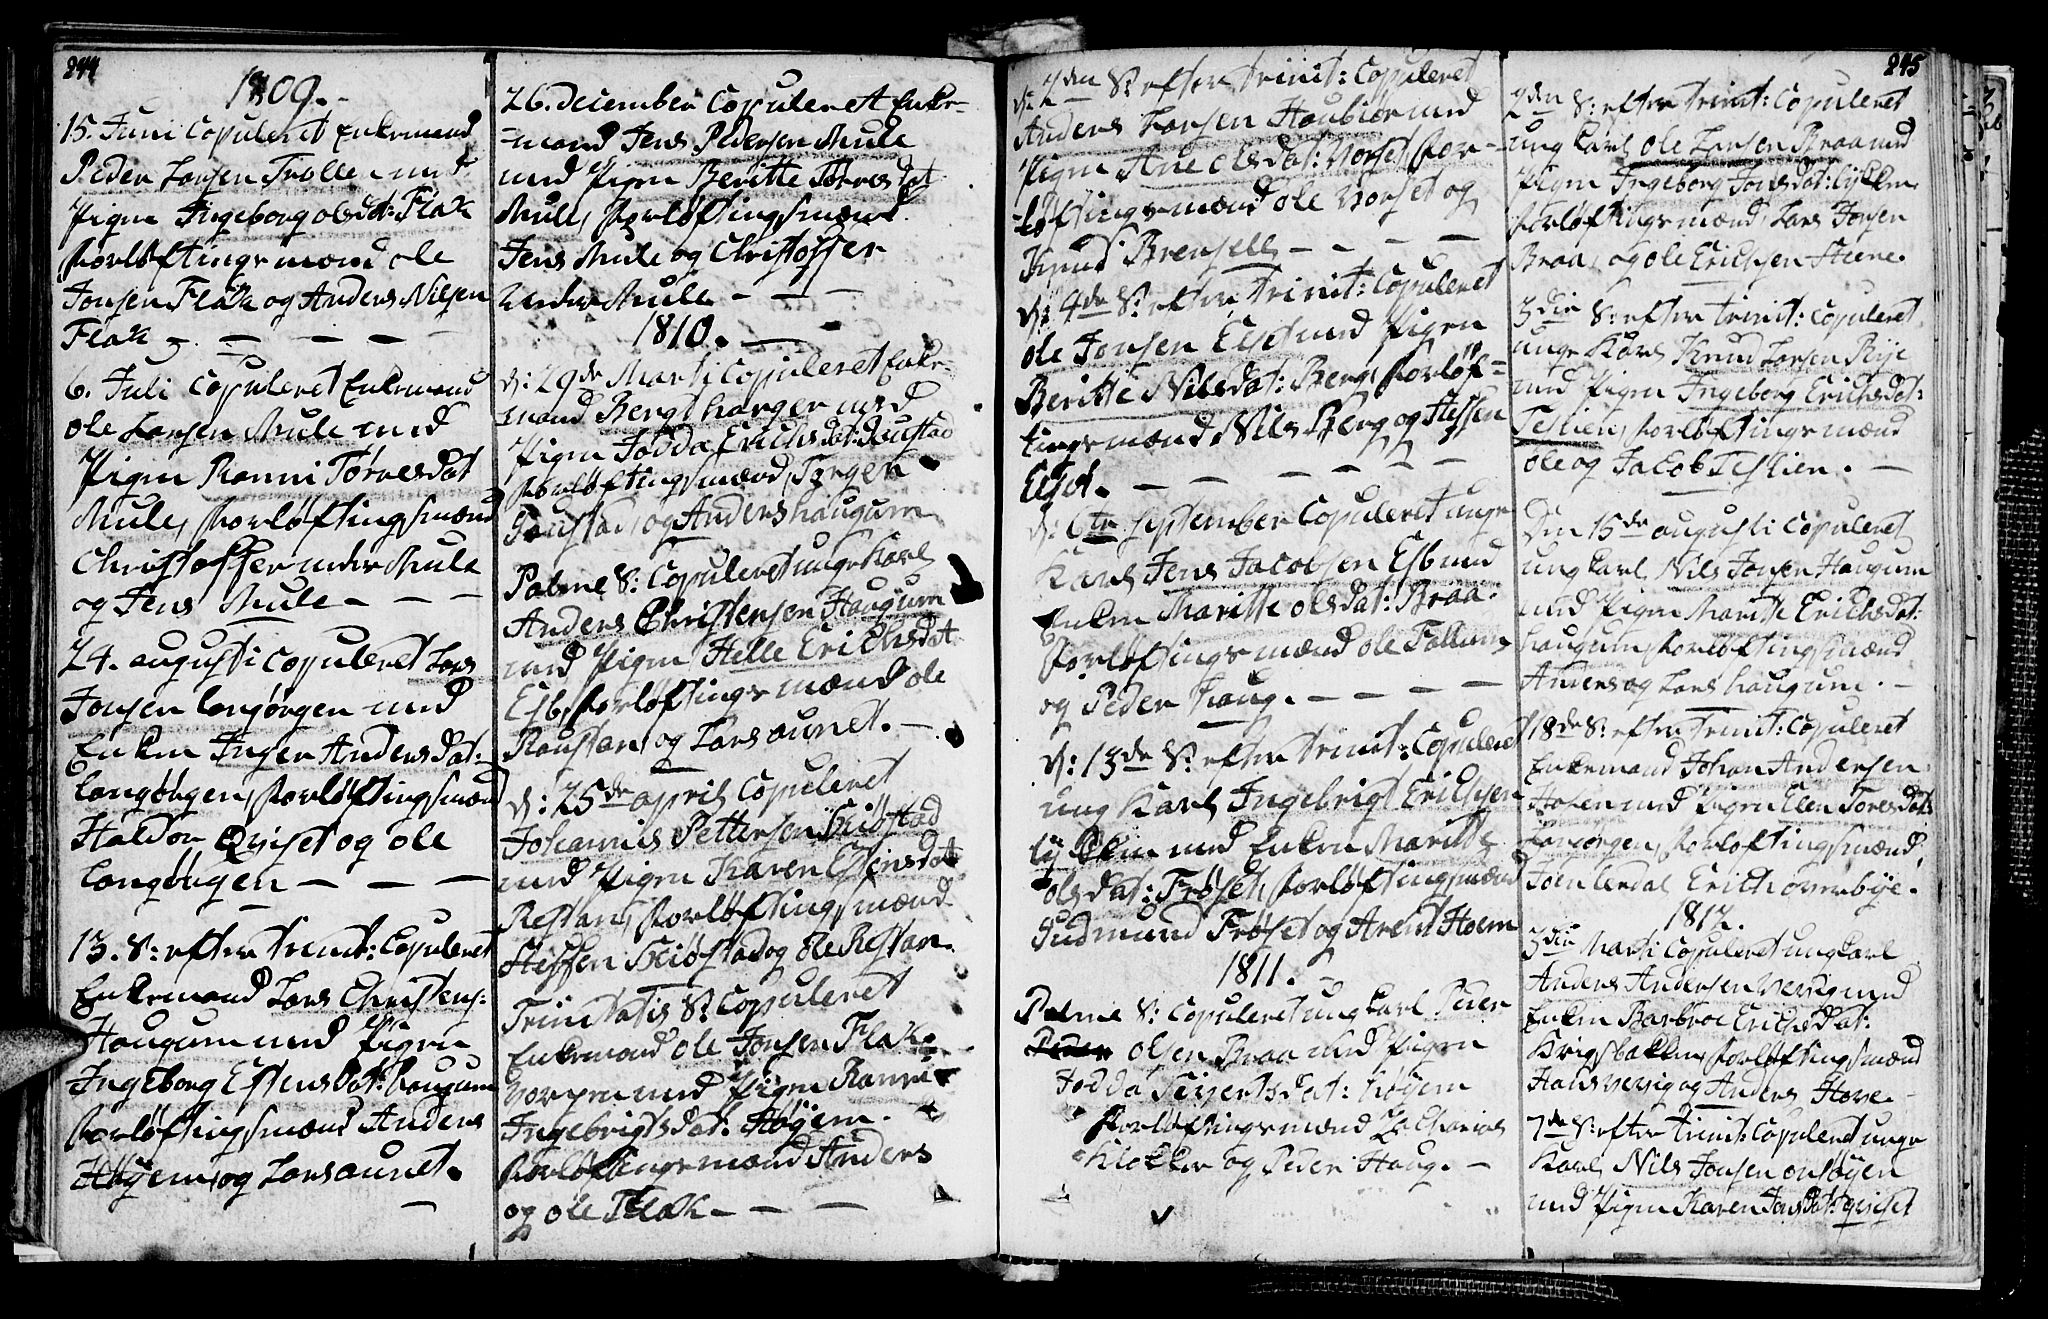 244
1809.
15. Juni Copuleret Enkemand
Peder Larsen Trolle med
Pigen Ingeborg olsdat: Flak
forløftingsmænd ole
Jonsen Flak og Anders Nilsen
Flak
6. Juli Copuleret Enkemand
ole Larsen Mule med
Pigen Ranni Torresdat
Mule, forløftingsmænd
Christoffer neder Mule
og Jens Mule
24. augusti Copuleret Lars
Jonsen Langørgen med
Enken Inger Andersdat:
Langørgen, forløftingsmænd
Haldor Qviset og ole
Langørgen
13. S: efter trinit: Copuleret
Enkemand Lars Christens:
Haugum med Pigen
Ingeborg Estensdat: haugum
forløftingsmænd Anders
Høyem, og Lars aunet.
26. december Copuleret Enke-
-mand Jens Pedersen Mule
med Pigen Beritte Torresdat
Mule, forløftingsmænd
Jens Mule og Christoffer
Neder Mule
1810.
d: 29de Marti Copuleret Enke-
mand Bengt harger med
Pigen Jodda Erichsdat: Doustad
forløftingsmænd, Jørgen
og Anders haugum
Palme S: Copuleret unge Karl
Anders Christensen Haugum
med Pigen Helle Erichsdat
Esb, forløftingsmænd ole
Roustan og Lars aunet.
d: 25de april Copuleret
Johannis Pettersen Skiøstad
med Pigen Karen Estensdat
Restan, forløftingsmænd
Steffen Skiøstad og ole Restan.
Trinitatis S: Copuleret
Enkemand ole Jonsen Flak-
med Pigen Ranni
Ingebrigtsdat: Høyem.
forløftingsmænd Anders
og ole Flak
245
d: 2den S: efter trinit: Copuleret
Anders Larsen Haubior med
Pigen Ane olsdat: Norset, for-
-løftingsmænd ole Norset og
Knud Brensell
d: 4de S: efter trinit: Copuleret
ole Jonsen Elset med Pigen
Beritte Nilsdat: Berg, forløf-
tingsmænd, Nils Berg og Steffen
Elset.
d: 6te september Copuleret unge
Karl Jens Jacobsen Esb med
Enken Maritte olsdat: Braa.
forløftingsmænd ole Follum
og Peder haug.
d: 13de S: efter trinit: Copuleret
ung Karl Ingebrigt Erichsen
Lykken med Enken Maritte
olsdat: Frøset, forløftingsmænd
Gudmund Frøset og Arent Hoem
1811.
Palme S: Copuleret ung karl Peder
olsen Braa med Pigen
Jodda Sivertsdat: høyem
forløftingsmænd Zacharias
Klokker og Peder Haug.
2den S: efter trinit: Copuleret
ung karl ole Larsen Braa med
Pigen Ingeborg Jonsdat: lykken
forløftingsmænd Lars Jonsen
Braa, og ole Erichsen Steene.
3die S: efter trinit: Copuleret
unge Karl Knud Larsen Rye
med Pigen Ingeborg Erichsdat:
Teslien, forløftingsmænd
ole og Jacob Teslien.
Den 15de augusti Copuleret
ung karl Nils Jonsen Haugum
med Pigen Maritte Erichsdat:
haugum, forløftingsmænd
Anders og Lars haugum.
18de S: efter trinit: Copuleret
Enkemand Johan Andersen
med Pigen Elen Toresdat:
Langørgen, forløftingsmænd,
Joen lerdal Erich overbye.
1812.
3die Marti Copuleret ung karl
Anders Andersen Vesvig med
Enken Barbroe Erichsdat:
Krigsbakken, forløftingsmænd
Hans Vesvig og Anders Hove.
7de S: efter trinit: Copuleret unge
Karl Nils Jonsen onsøyen
med Pigen Karen Jonsdat: qviset